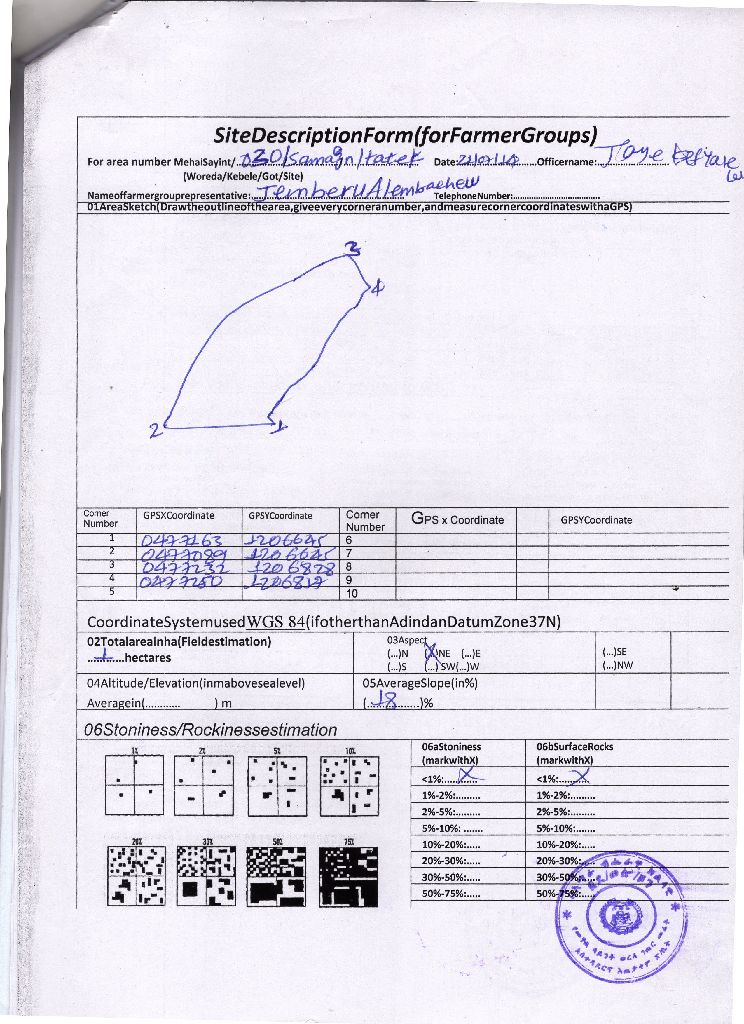 SiteDescriptionForm(forFarmerGroups)
For area number MehalSayint/ 030/Samagn/tatek Date: Officername: Taye
(Woreda/Kebele/Got/Site)
Nameoffarmergrouprepresentative: Jemberu Alembachew TelephoneNumber:
01AreaSketch(Drawtheoutlineofthearea,giveeverycorneranumber,andmeasurecornercoordinateswithaGPS)
3
4
2 1
Corner Number GPSXCoordinate GPSYCoordinate Corner Number GPS x Coordinate GPSYCoordinate
1 0477163 1206645 6
2 0477089 1206645 7
3 0477232 1206828 8
4 0477250 1206817 9
5 10
CoordinateSystemused WGS 84(ifotherthanAdindanDatumZone37N)
02Totalareainha(Fieldestimation) 03Aspect
1 hectares (...)N (X)NE (...)E (...)SE
(...)S (...)SW(...)W (...)NW
04Altitude/Elevation(inmabovesealevel) 05AverageSlope(in%)
Averagein(...........) m (18)%
06Stoniness/Rockinessestimation
1% 2% 5% 10%
06aStoniness (markwithX) 06bSurfaceRocks (markwithX)
<1%: X <1%: X
1%-2%:......... 1%-2%:.........
2%-5%:......... 2%-5%:.........
5%-10%: ....... 5%-10%:.......
10%-20%:..... 10%-20%:.....
20% 50% 75%
20%-30%:..... 20%-30%:.....
30%-50%:..... 30%-50%:.....
50%-75%:..... 50%-75%:.....